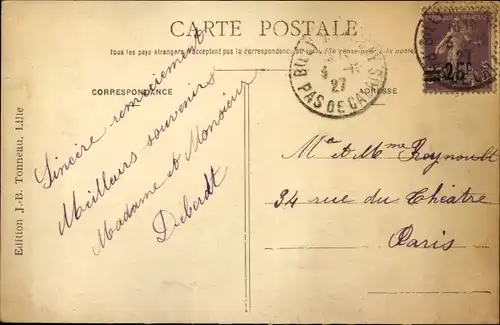 CARTE POSTALE
Tous les pays étrangers n'acceptent pas la correspondance au recto. (Se renseigner à la poste)
CORRESPONDANCE
ADRESSE
Sincère remerciement
Meilleurs souvenirs
Madame et Monsieur
Déberdt
PAS DE CALAIS
27
25c
Mr et Mme Reynoult
34 rue du Théâtre
Paris
Edition J.-B. Tonneau, Lille